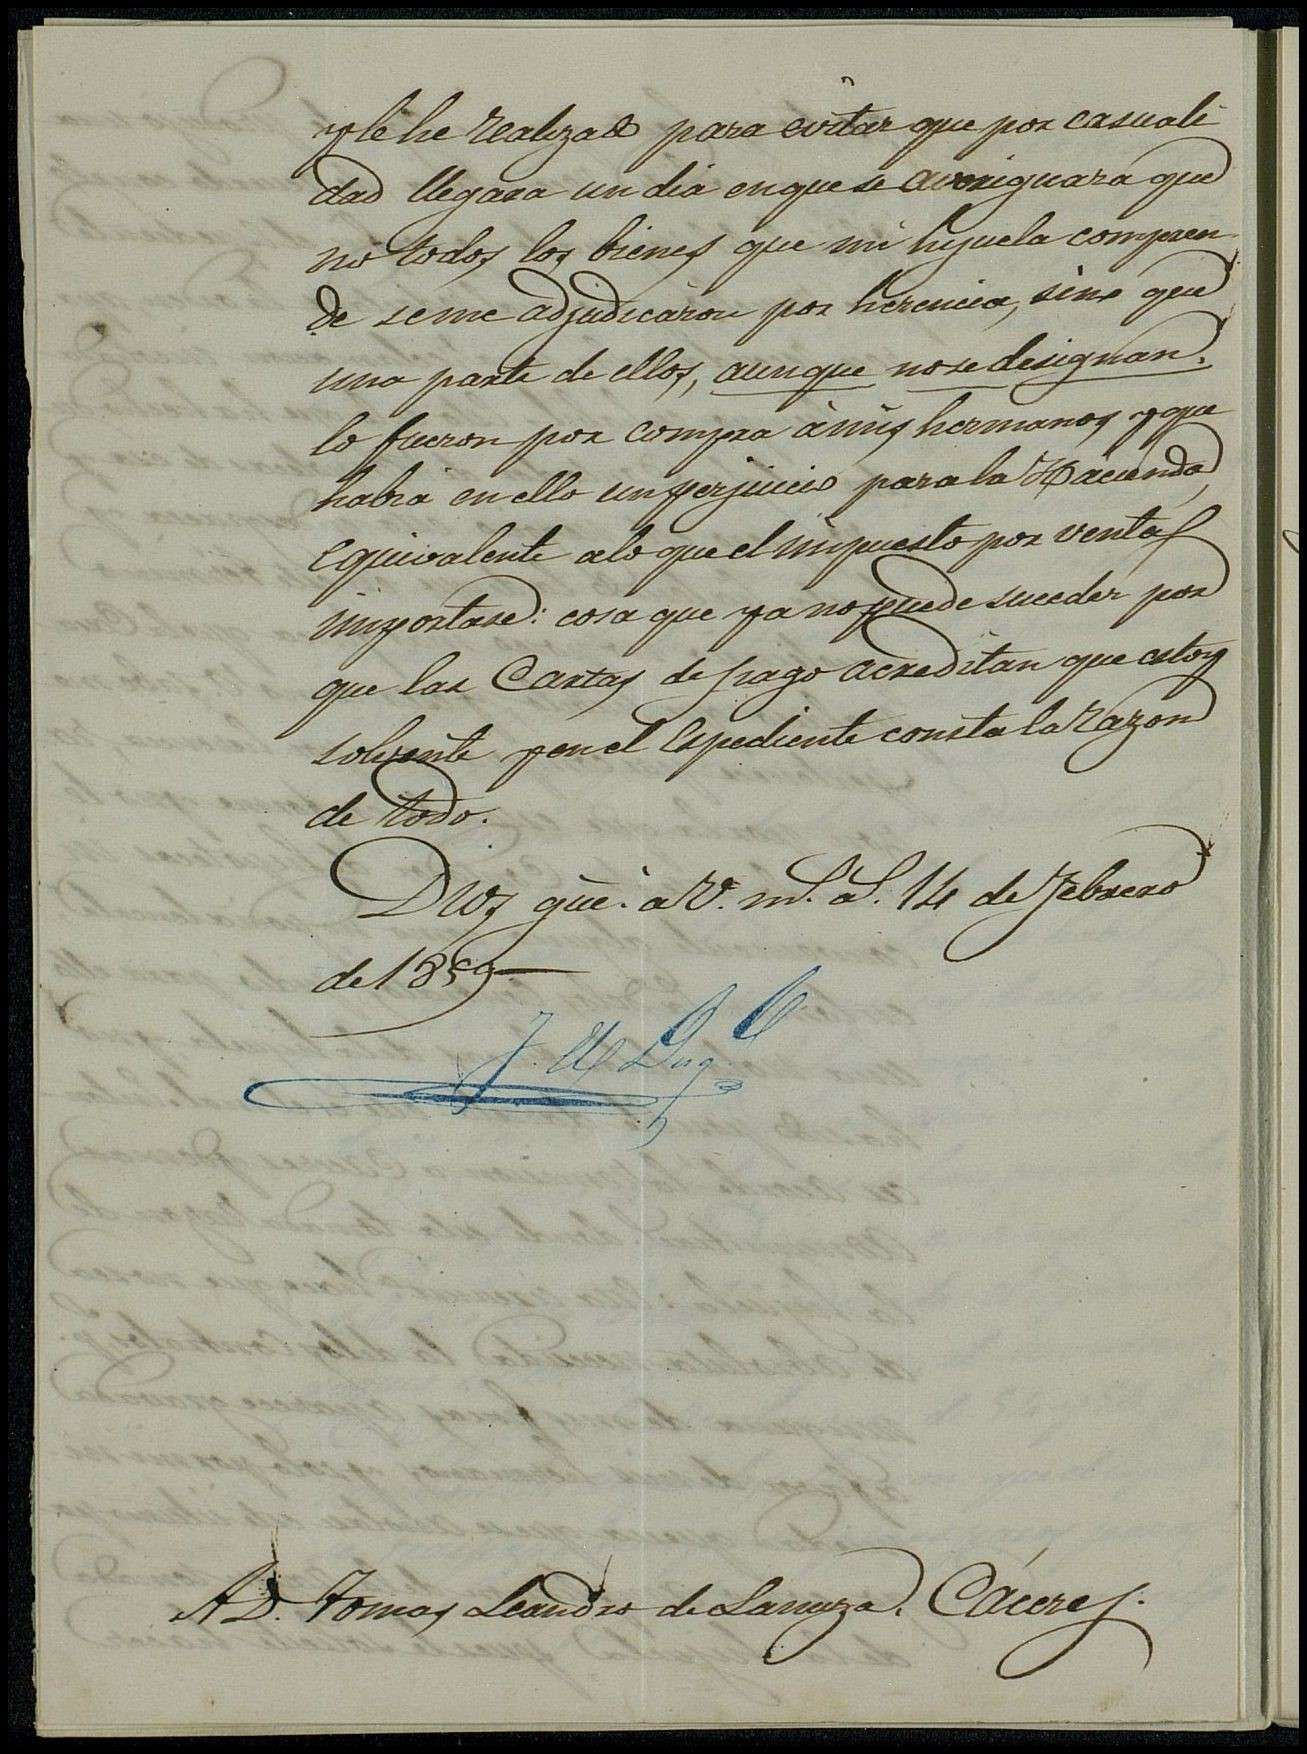 y le he realizado para evitar que por casuali
dad llegara un dia en que se averiguara que
no todos los bienes que mi hijuela compren
de se me adjudicaron por herencia, sino que
una parte de ellos, aunque no se designan.
lo fueron por compra á mis hermanos y que
habia en ello un perjuicio para la Hacienda
equivalente a lo que el impuesto por ventas
importase: cosa que ya no puede suceder por
que las Cartas de pago acreditan que estoy
solvente y en el espediente consta la razon
de todo.
Dios gue. a V. m.s a.s 14 de Febrero
de 1859
A D. Tomas Leandro de Lanuza. Cáceres.